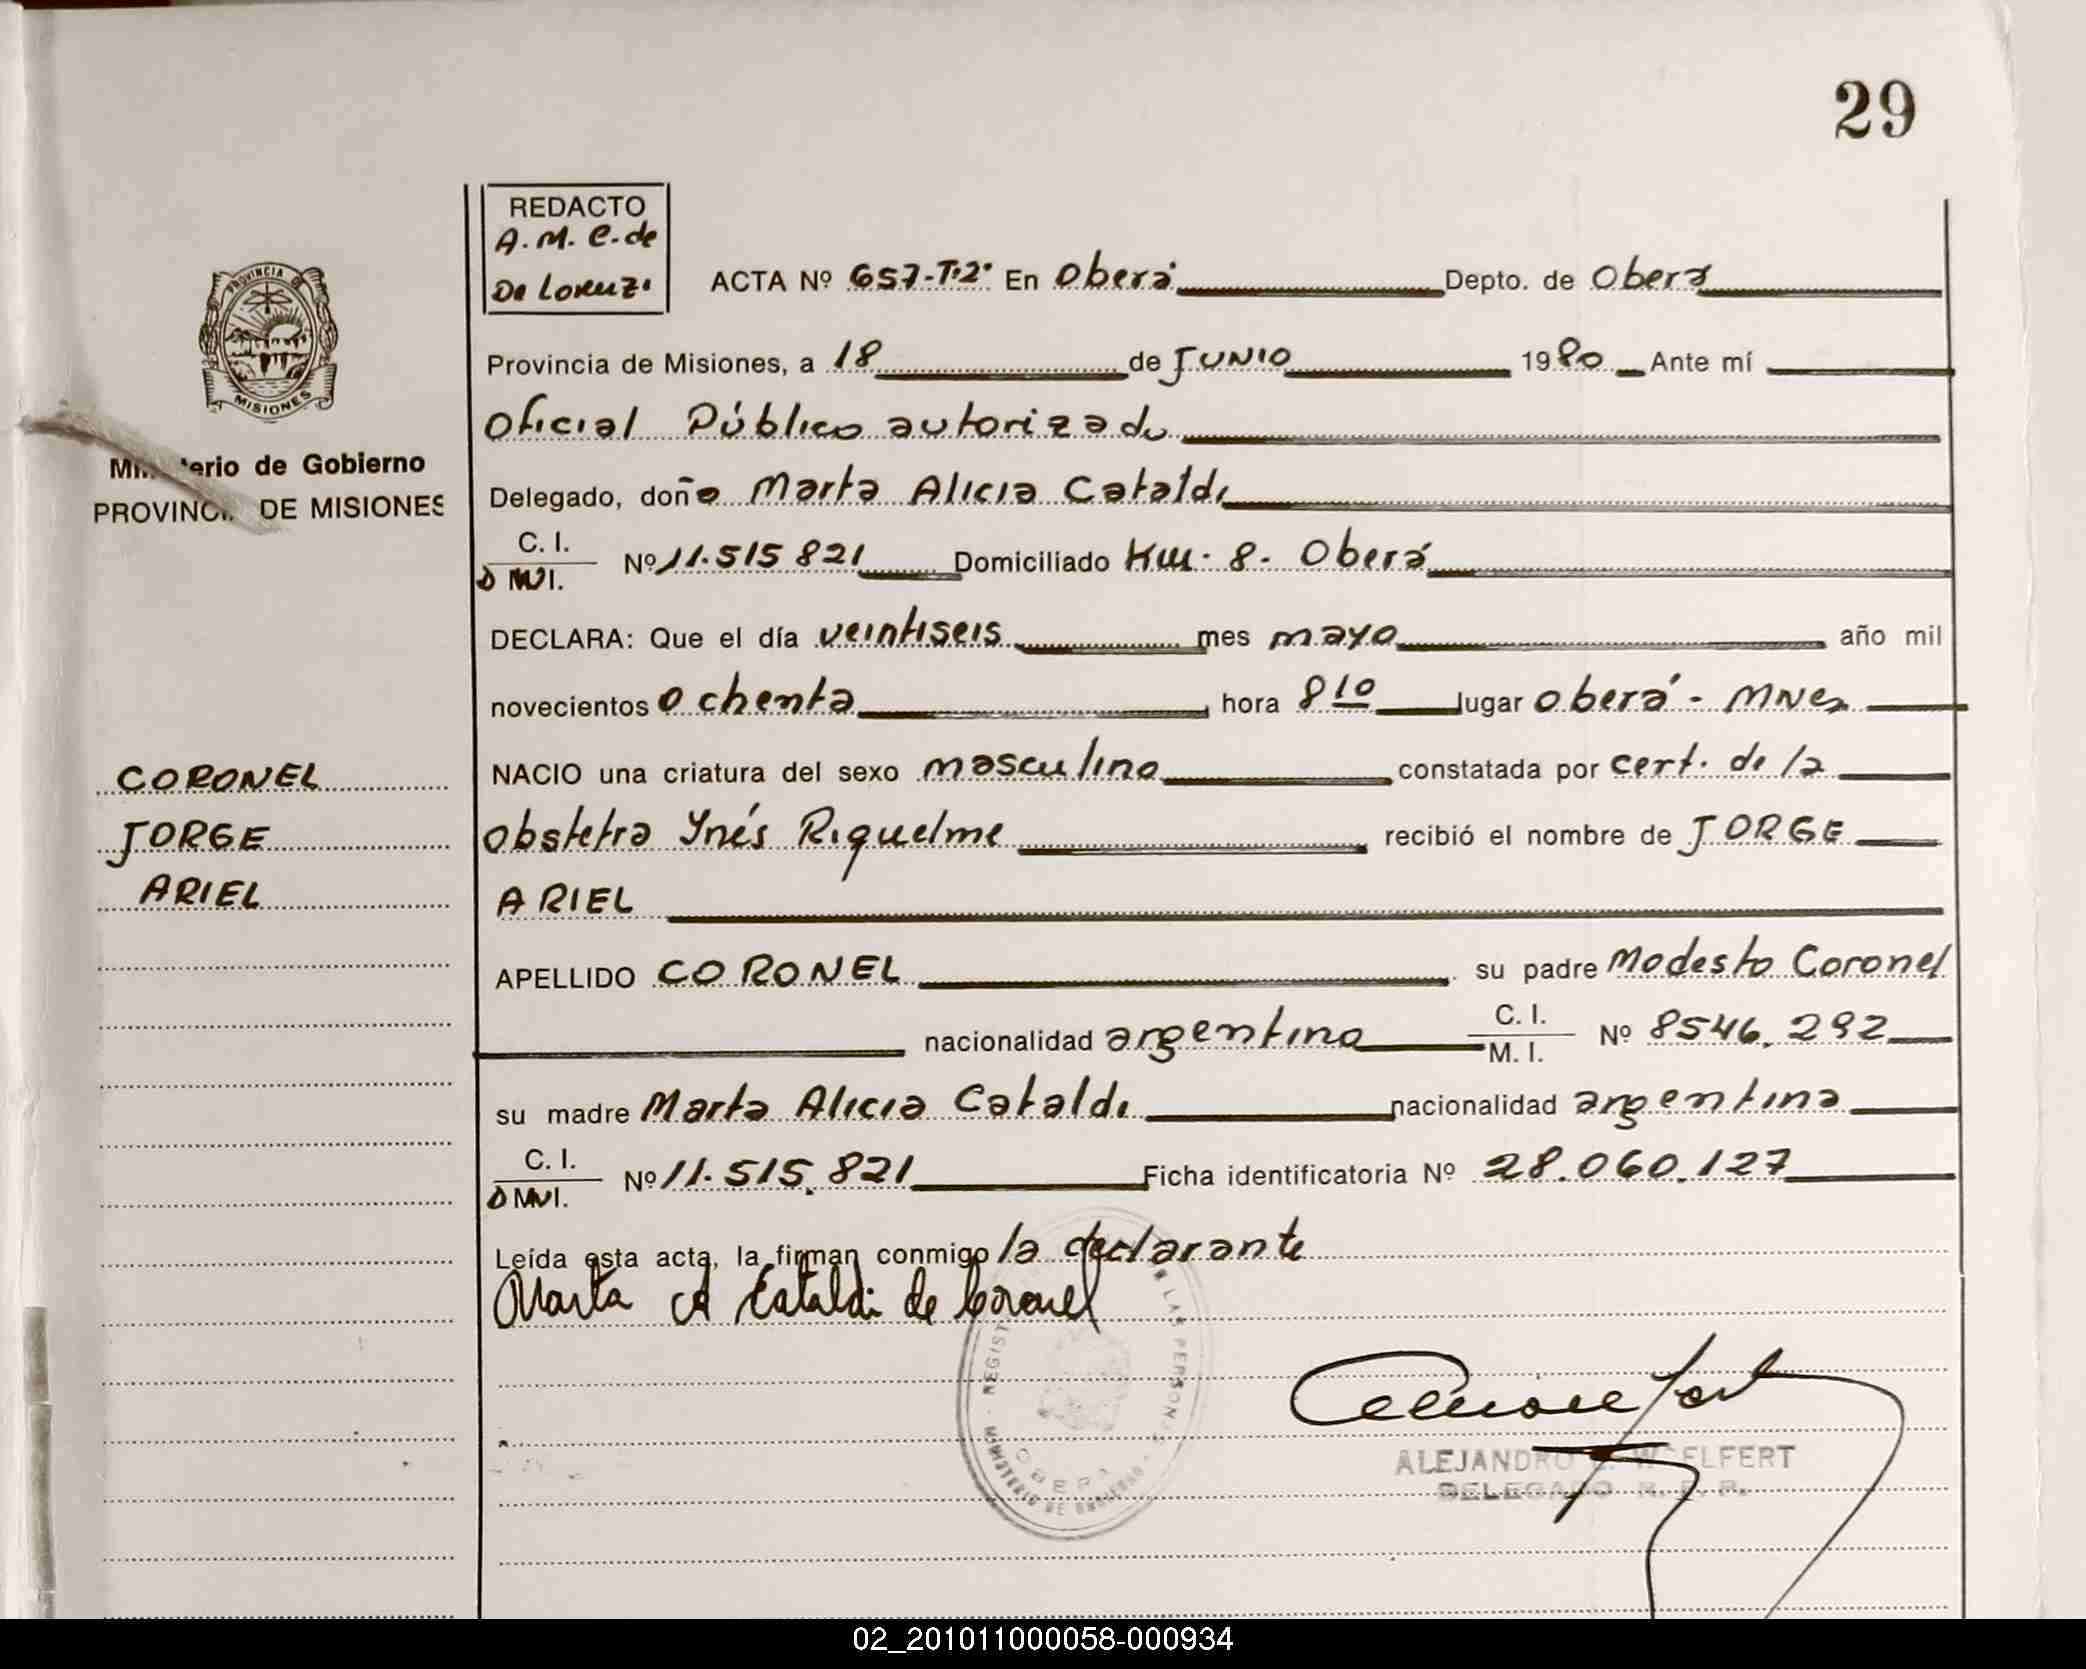 29
REDACTO
A. M. C. de
De Lorenzi
ACTA Nº 657-Tº2º En Oberá Depto. de Oberá
PROVINCIA DE
MISIONES
Provincia de Misiones, a 18 de JUNIO 1980 Ante mí
Oficial Público autorizado
Ministerio de Gobierno
PROVINCIA DE MISIONES
Delegado, doña Marta Alicia Cataldi
C. I.
D M I. Nº 11.515 821 Domiciliado Km. 8. Oberá
DECLARA: Que el día veintiseis mes mayo año mil
novecientos ochenta hora 8 10 lugar Oberá - Mnes
CORONEL
NACIO una criatura del sexo masculino constatada por cert. de la
JORGE
obstetra Ynés Riquelme recibió el nombre de JORGE
ARIEL
ARIEL
APELLIDO CORONEL su padre Modesto Coronel
nacionalidad argentino C. I.
M. I. Nº 8546.292
su madre Marta Alicia Cataldi nacionalidad argentina
C. I.
D M I. Nº 11.515.821 Ficha identificatoria Nº 28.060.127
Leída esta acta, la firman conmigo la declarante
Marta A Cataldi de Coronel
LAS PERSONAS
MINISTERIO DE GOBIERNO
OBERA
ALEJANDRO WOELFERT
DELEGADO R. P.
02_201011000058-000934